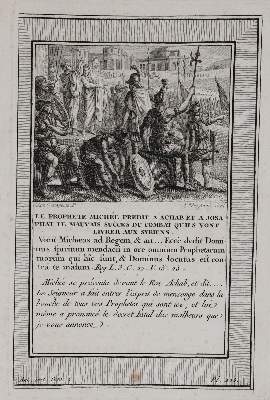 LE PROPHETE MICHÉE PREDIT A ACHAB ET A JOSA
PHAT LE MAUVAIS SUCCES DU COMBAT QU'ILS VONT
LIVRER AUX SYRIENS.
Venit Micheas ad Regem, & ait... Ecce dedit Domi
nus spiritum mendacii in ore omnium Prophetarum
tuorum qui hic sunt, & Dominus locutus est con
tra te malum. Reg. L. 3. C. 22. V. 15. 23.
Michée se présenta devant le Roi Achab, et dit....
Le Seigneur a fait entrer l'esprit de mensonge dans la
bouche de tous vos Prophetes qui sont ici, et lui
même a prononcé le decret fatal des malheurs que
je vous annonce.